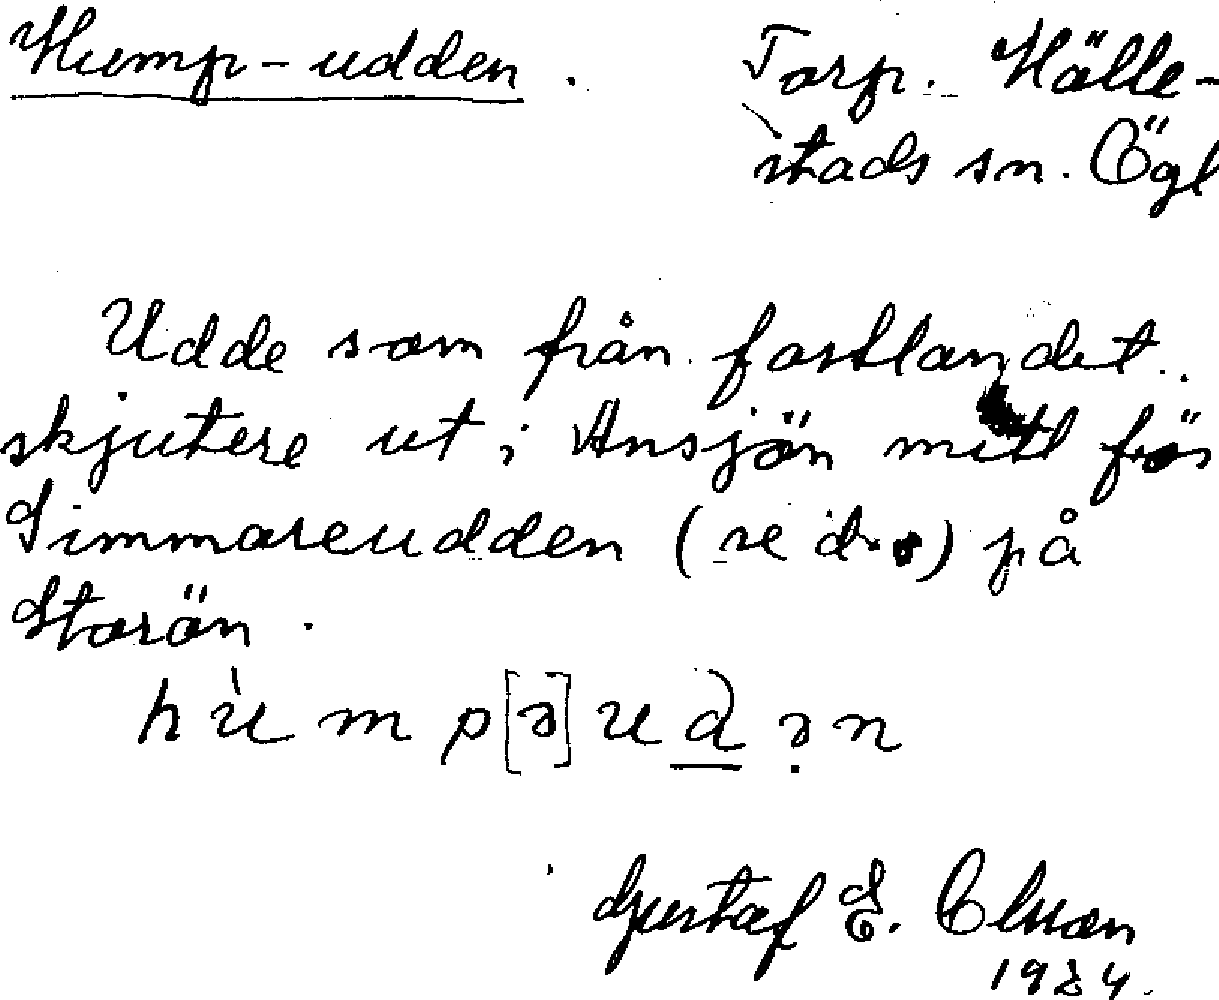 Hump-udden. Torp. Hälle-
stads sn. Ögl
Udde som från fastlandet
skjutere ut i Ansjön mitt för
Simmareudden (se d.o) på
Storön.
hùmp[ə]uḏə̣n
Gustaf E. Olsson
1934.